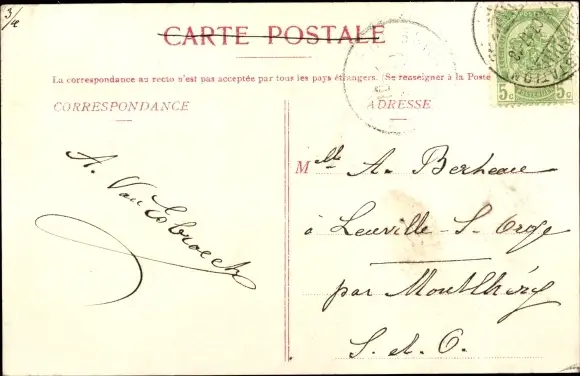 3/a
CARTE POSTALE
La correspondance au recto n'est pas acceptée par tous les pays étrangers. (Se renseigner à la Poste
CORRESPONDANCE
ADRESSE
A. Van Esbroeck
Mlle A. Berheau
à Leuville-S-Orge
par Montlhéry
S. et. O.
5c 5c